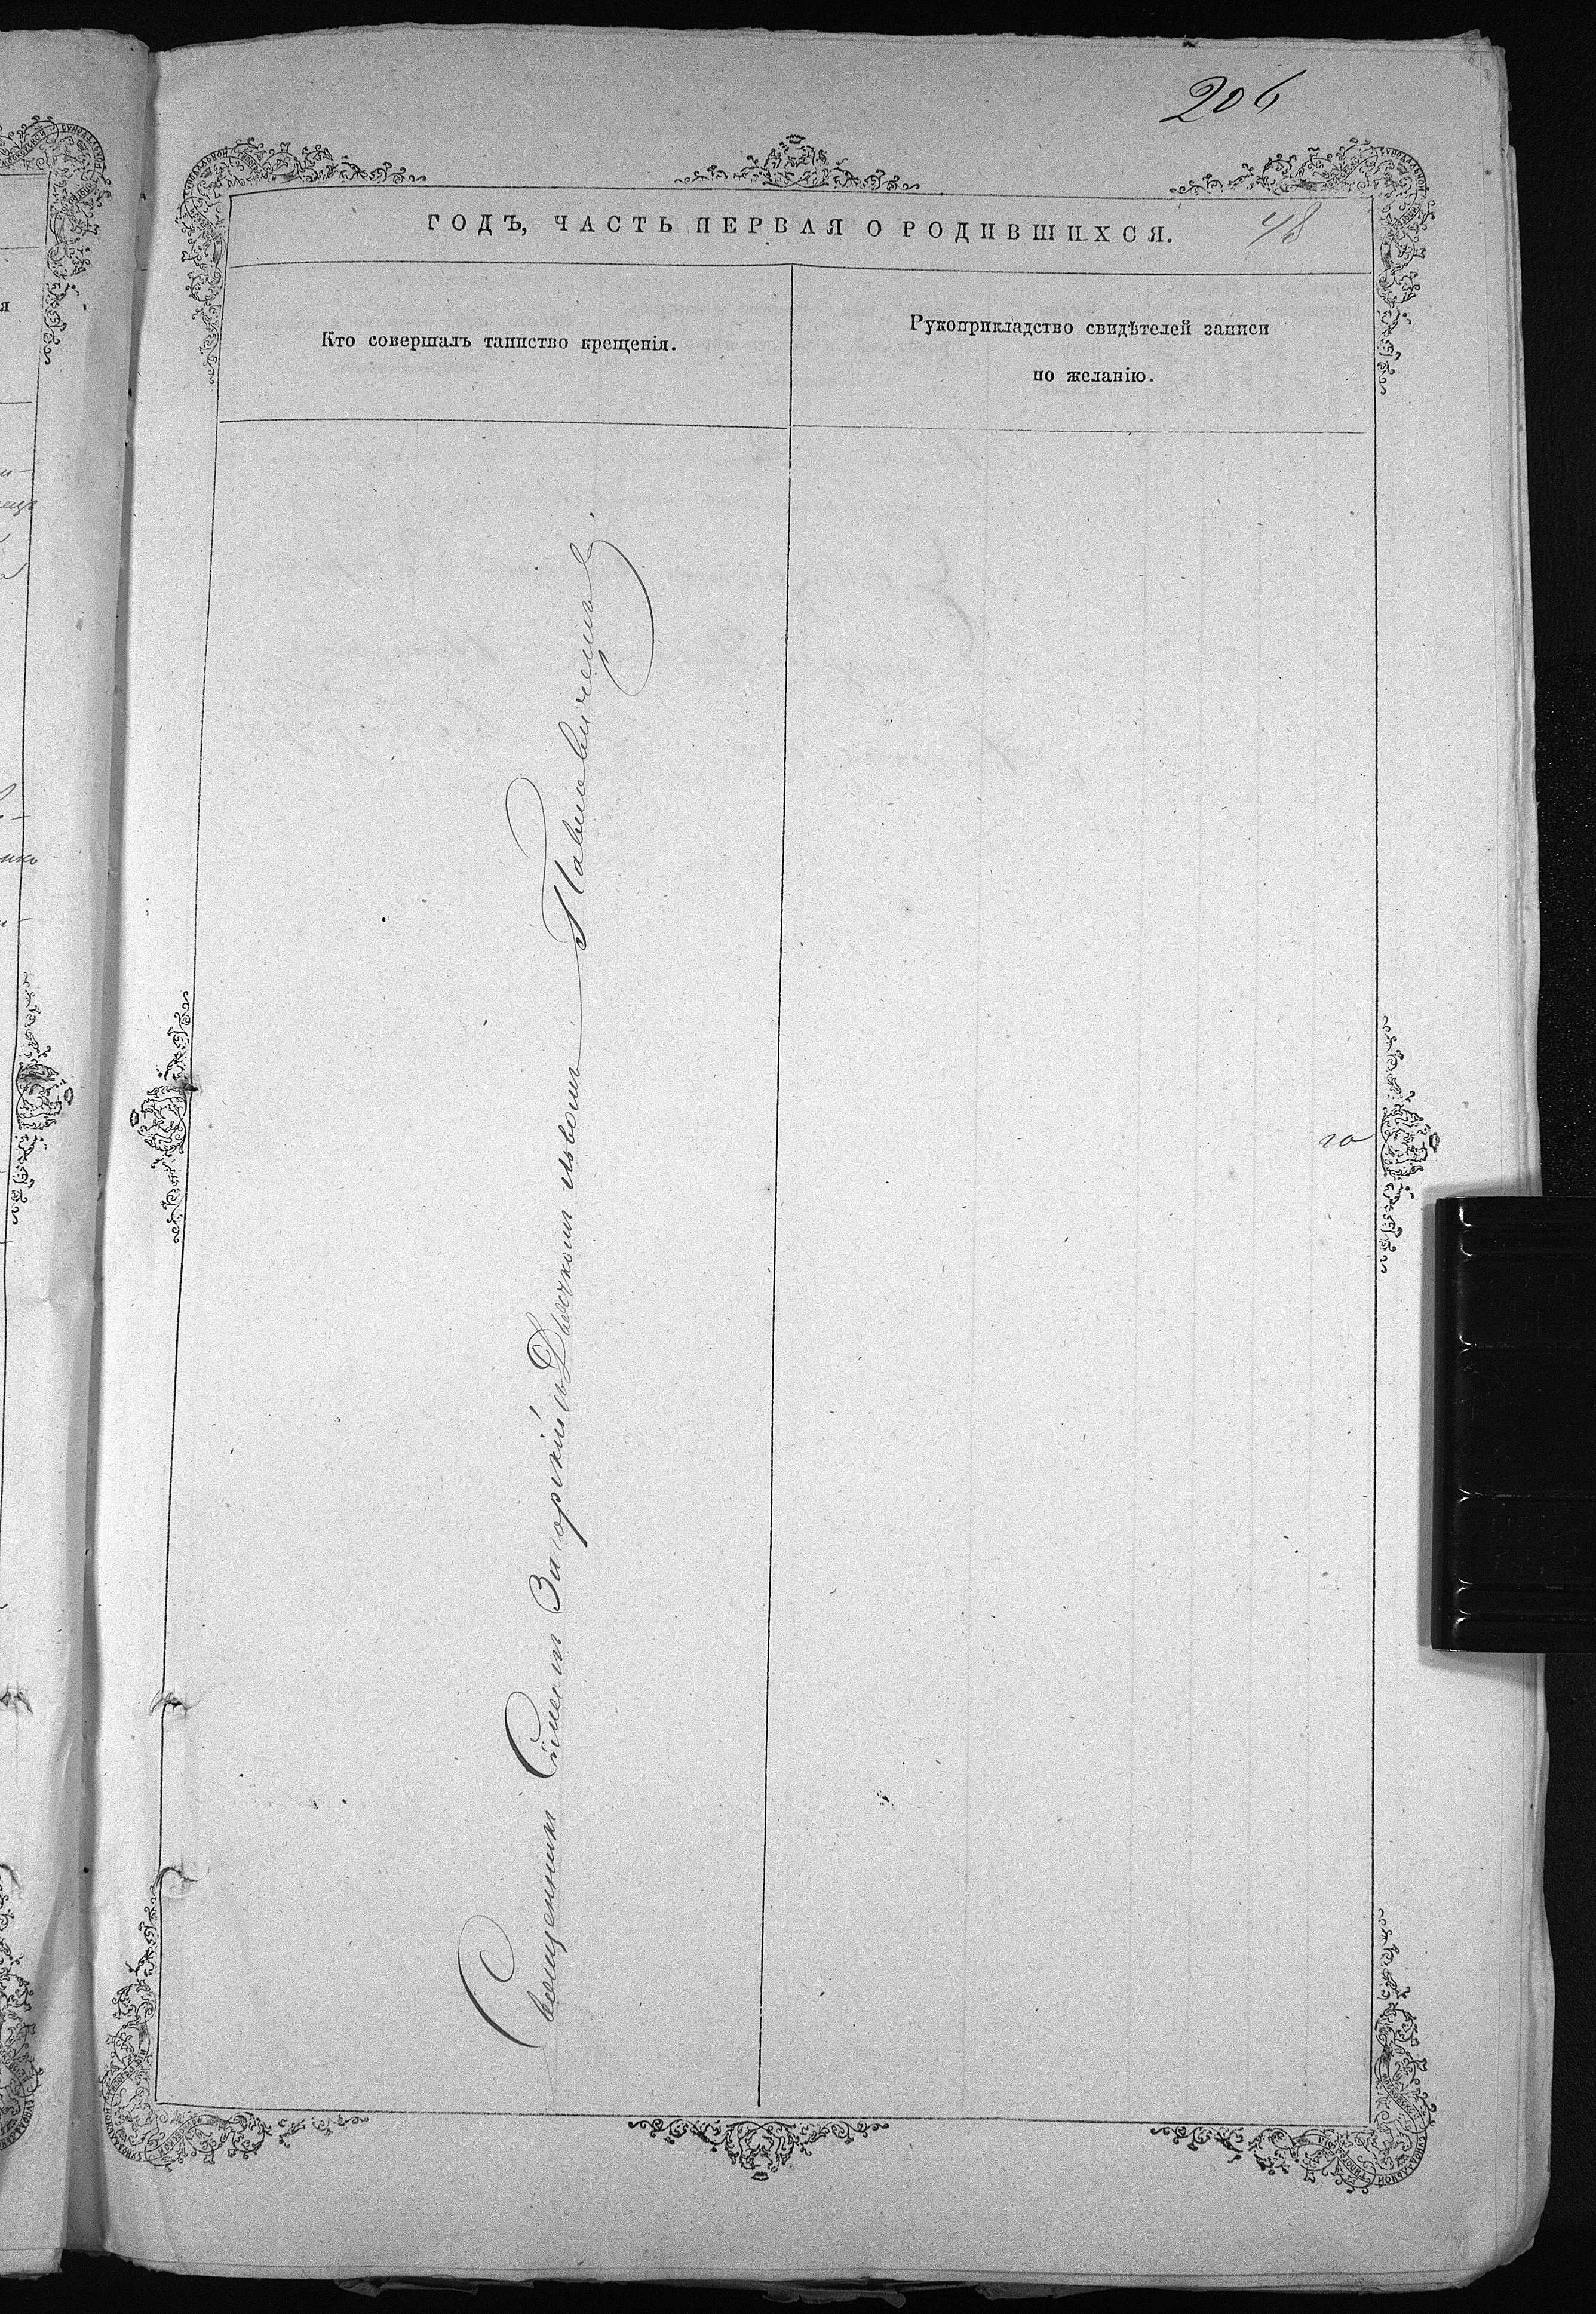 206
ГОДЪ, ЧАСТЬ ПЕРВАЯ О РОДИВШИХСЯ.
48
Кто совершалъ таинство крещенія.
Рукоприкладство свидѣтелей записи
по желанію.
Священникъ Симеонъ Загорскій съ Дьячкомъ Львомъ Павловичемъ
го